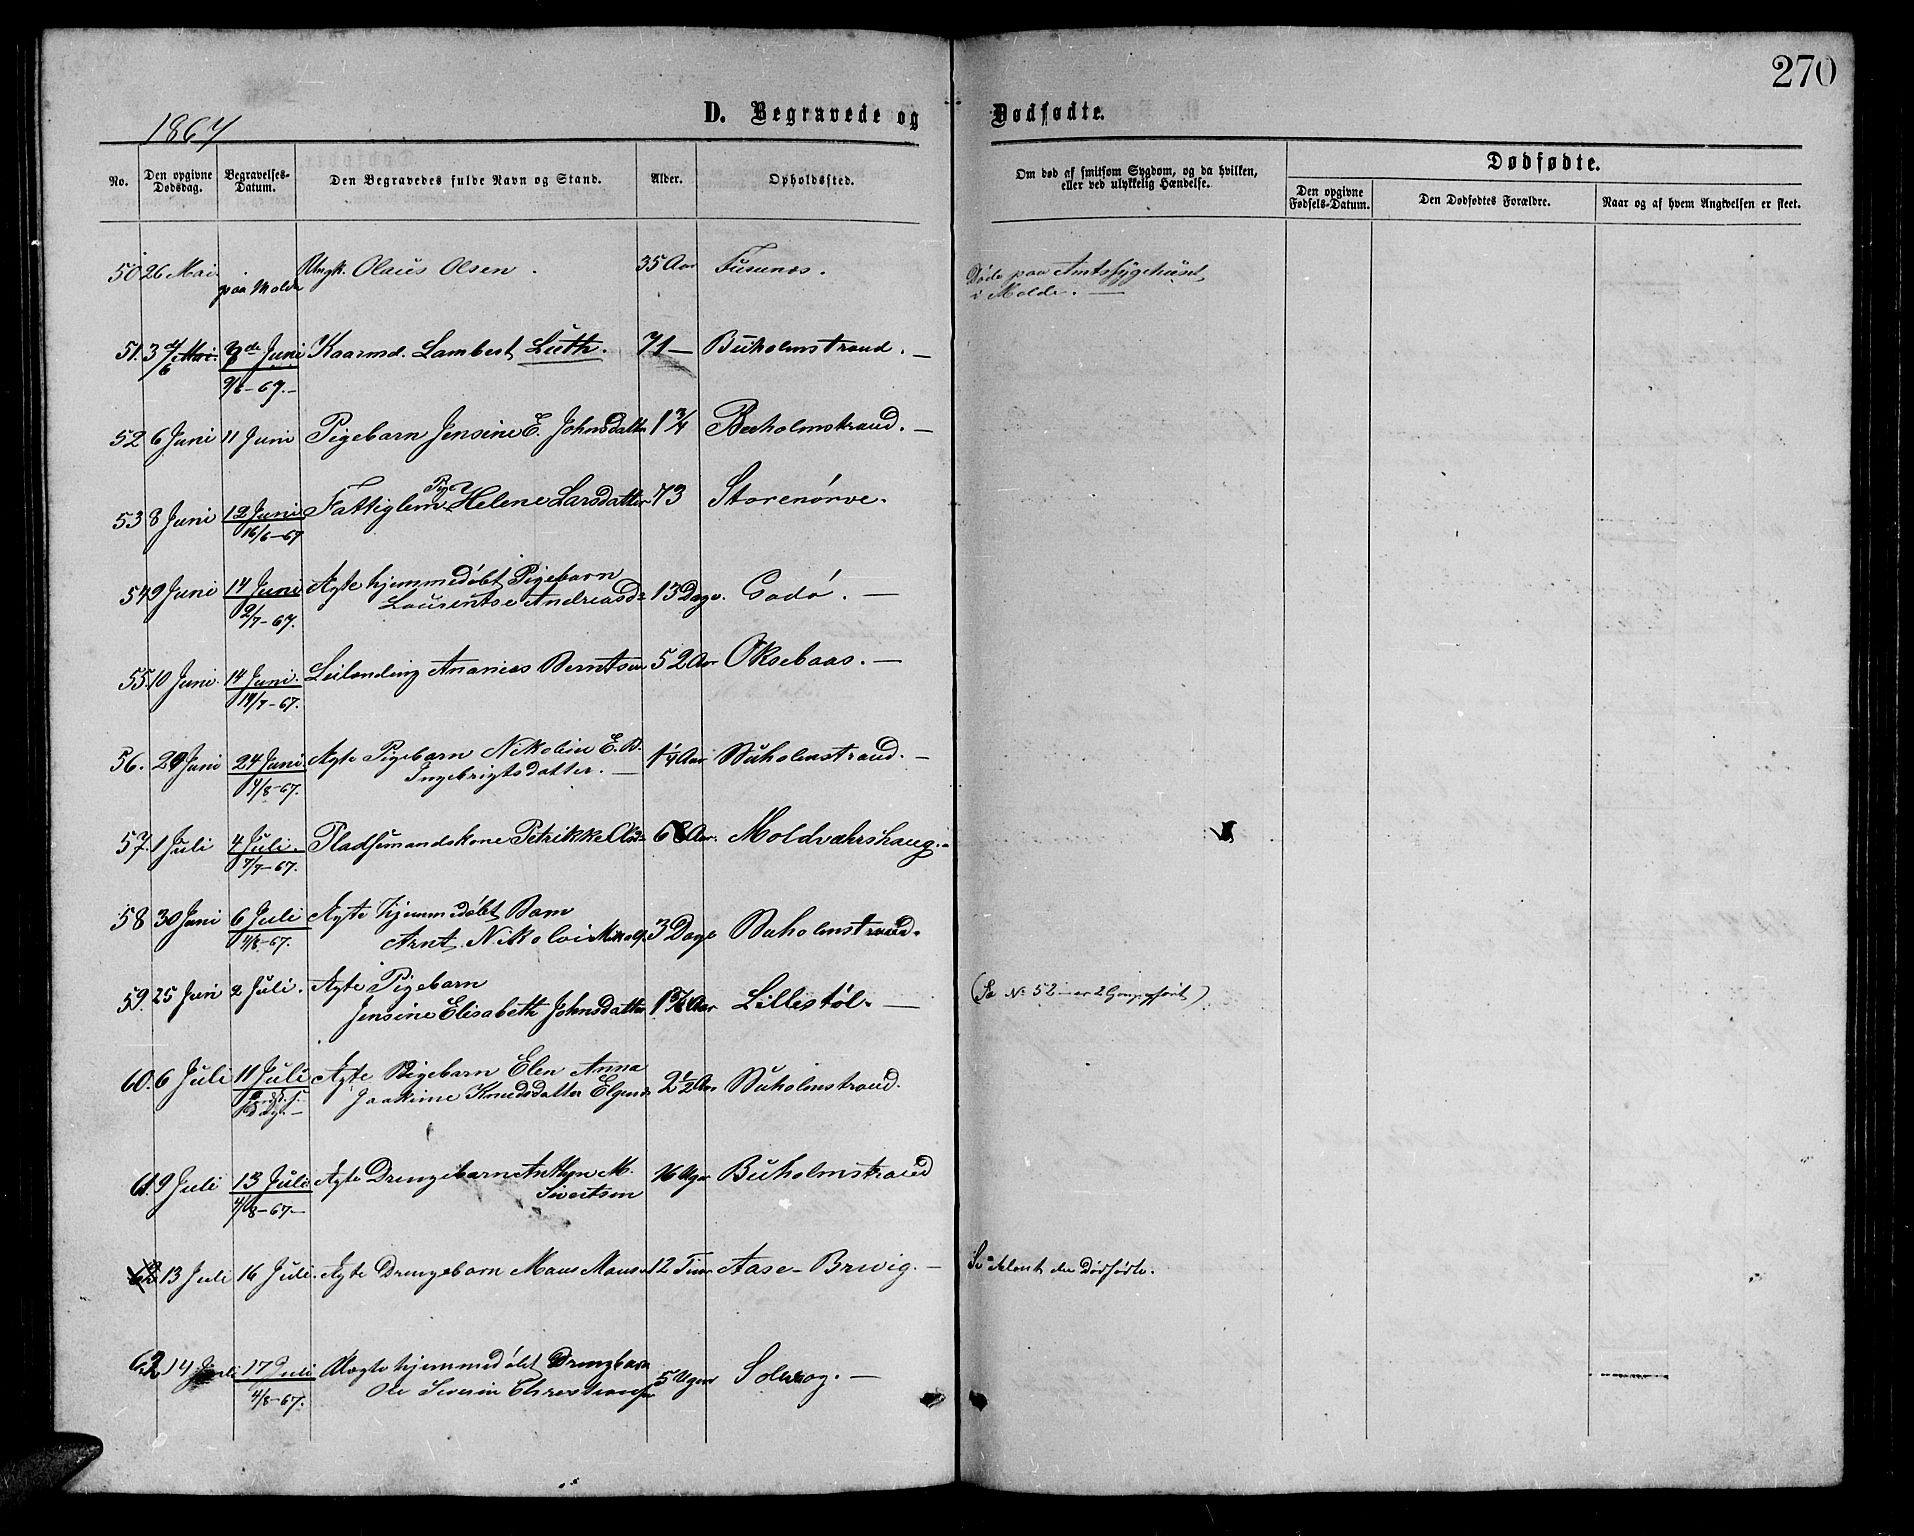 270
1867
D. Begravede og Dødfødte.
No. Den opgivne Dødsdag. Begravelses-Datum. Den Begravedes fulde Navn og Stand. Alder. Opholdssted. Om død af smitsom Sygdom, og da hvilken, eller ved ulykkelig Hændelse. Dødfødte.
Den opgivne Fødsels-Datum. Den Dødfødtes Forældre. Naar og af hvem Angivelsen er skeet.
50 26 Mai paa Molde Ungk. Olaus Olsen. 35 Aar Døde paa Amtssygehuset
i Molde. —
51. 3 Juni Kaarmd. Lambert Lüth. 71 — Buholmstrand. —
9/6-67. —
52 6 Juni 11 Juni Pigebarn Jensine E. Johnsdatter 1 3/4 Buholmstrand. —
53 8 Juni 12 Juni Fattiglem Helene Larsdatter 73 Storenørve.
16/6-67
54 9 Juni 14 Juni Ægte hjemmedøbt Pigebarn
Laurentse Andreasd= 13 Dage. Godø. —
2/7-67.
55. 10 Juni. 14 Juni. Leilænding Ananias Berntsen 52 Aar Oksebaas. —
14/7-67.
56. 20 Juni 24 Juni Ægte Pigebarn Nikoline E. B.
Ingebrigtsdatter. — 1 1/4 Aar Buholmstrand. —
4/8-67.
57. 1 Juli 4 Juli. Pladsemandskone Petrikke Olsd= 68 Aar. Moldværshaug. —
7/7-67.
58 30 Juni 6 Juli Ægte hjemmedøbt Barn
Arnt Nikolai 3 Dage Buholmstrand.
4/8-67.
59. 25 Juni 2 Juli. Ægte Pigebarn (Se No 52 — er 2 Gange
Jensine Elisabeth Johnsdatter Aar Lillestøl. —
60. 6 Juli 11 Juli Ægte Pigebarn Elen Anna
Joakime Knudsdatter 2 1/2 Aar Buholmstrand.
61. 9 Juli 13 Juli Ægte Drengebarn Anthon M.
Sivertsen 16 Uger Buholmstrand
4/8-67. —
13 Juli 16 Juli. Ægte Drengebarn Mons Monsen 12 Timer Aase- — Se blandt de Dødfødte.
62 14 Juli 17 Juli Uægte hjemmedøbt Drengbarn
Ole Severin 5 Uger
4/8-67.